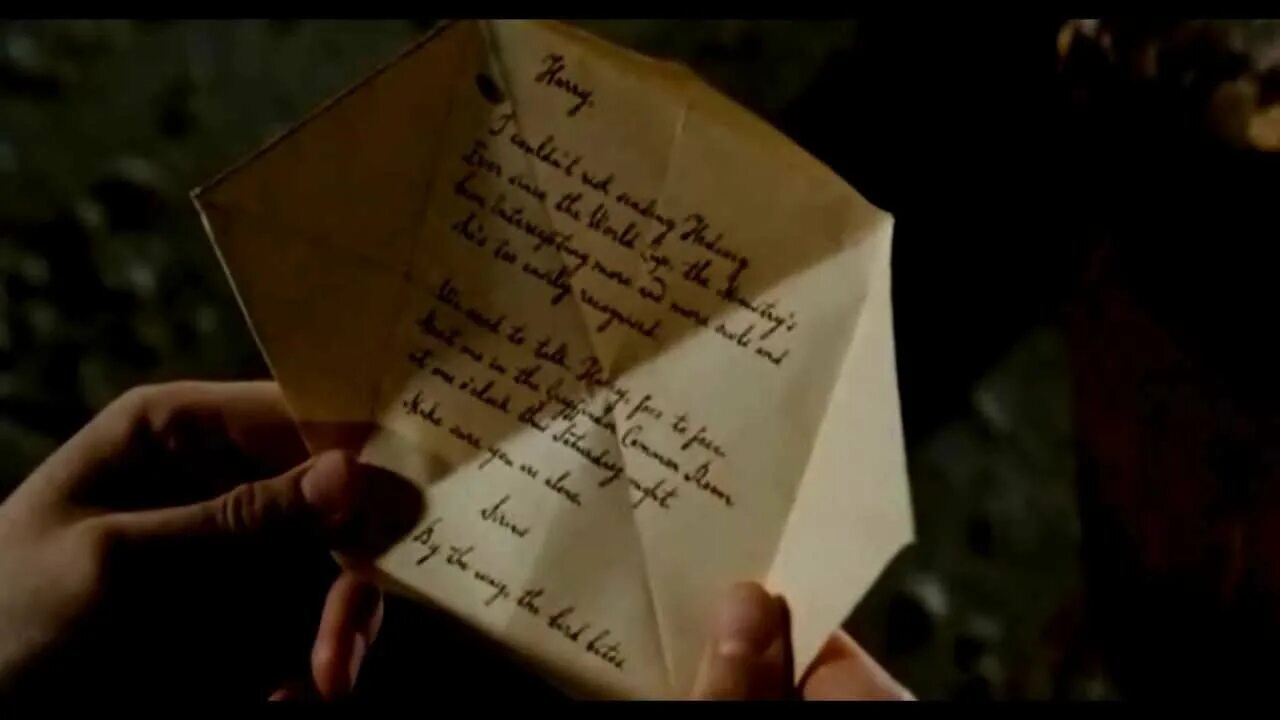 Harry,
I couldn't risk sending Hedwig
Ever since the World Cup, the Ministry's
been Intercepting more and more owls and
she's too easily recognised.
We need to talk Harry, face to face.
Meet me in the Gryffindor Common Room
at one o'clock this Saturday night
Make sure you are alone.
Sirius
By the way, the bird bites.